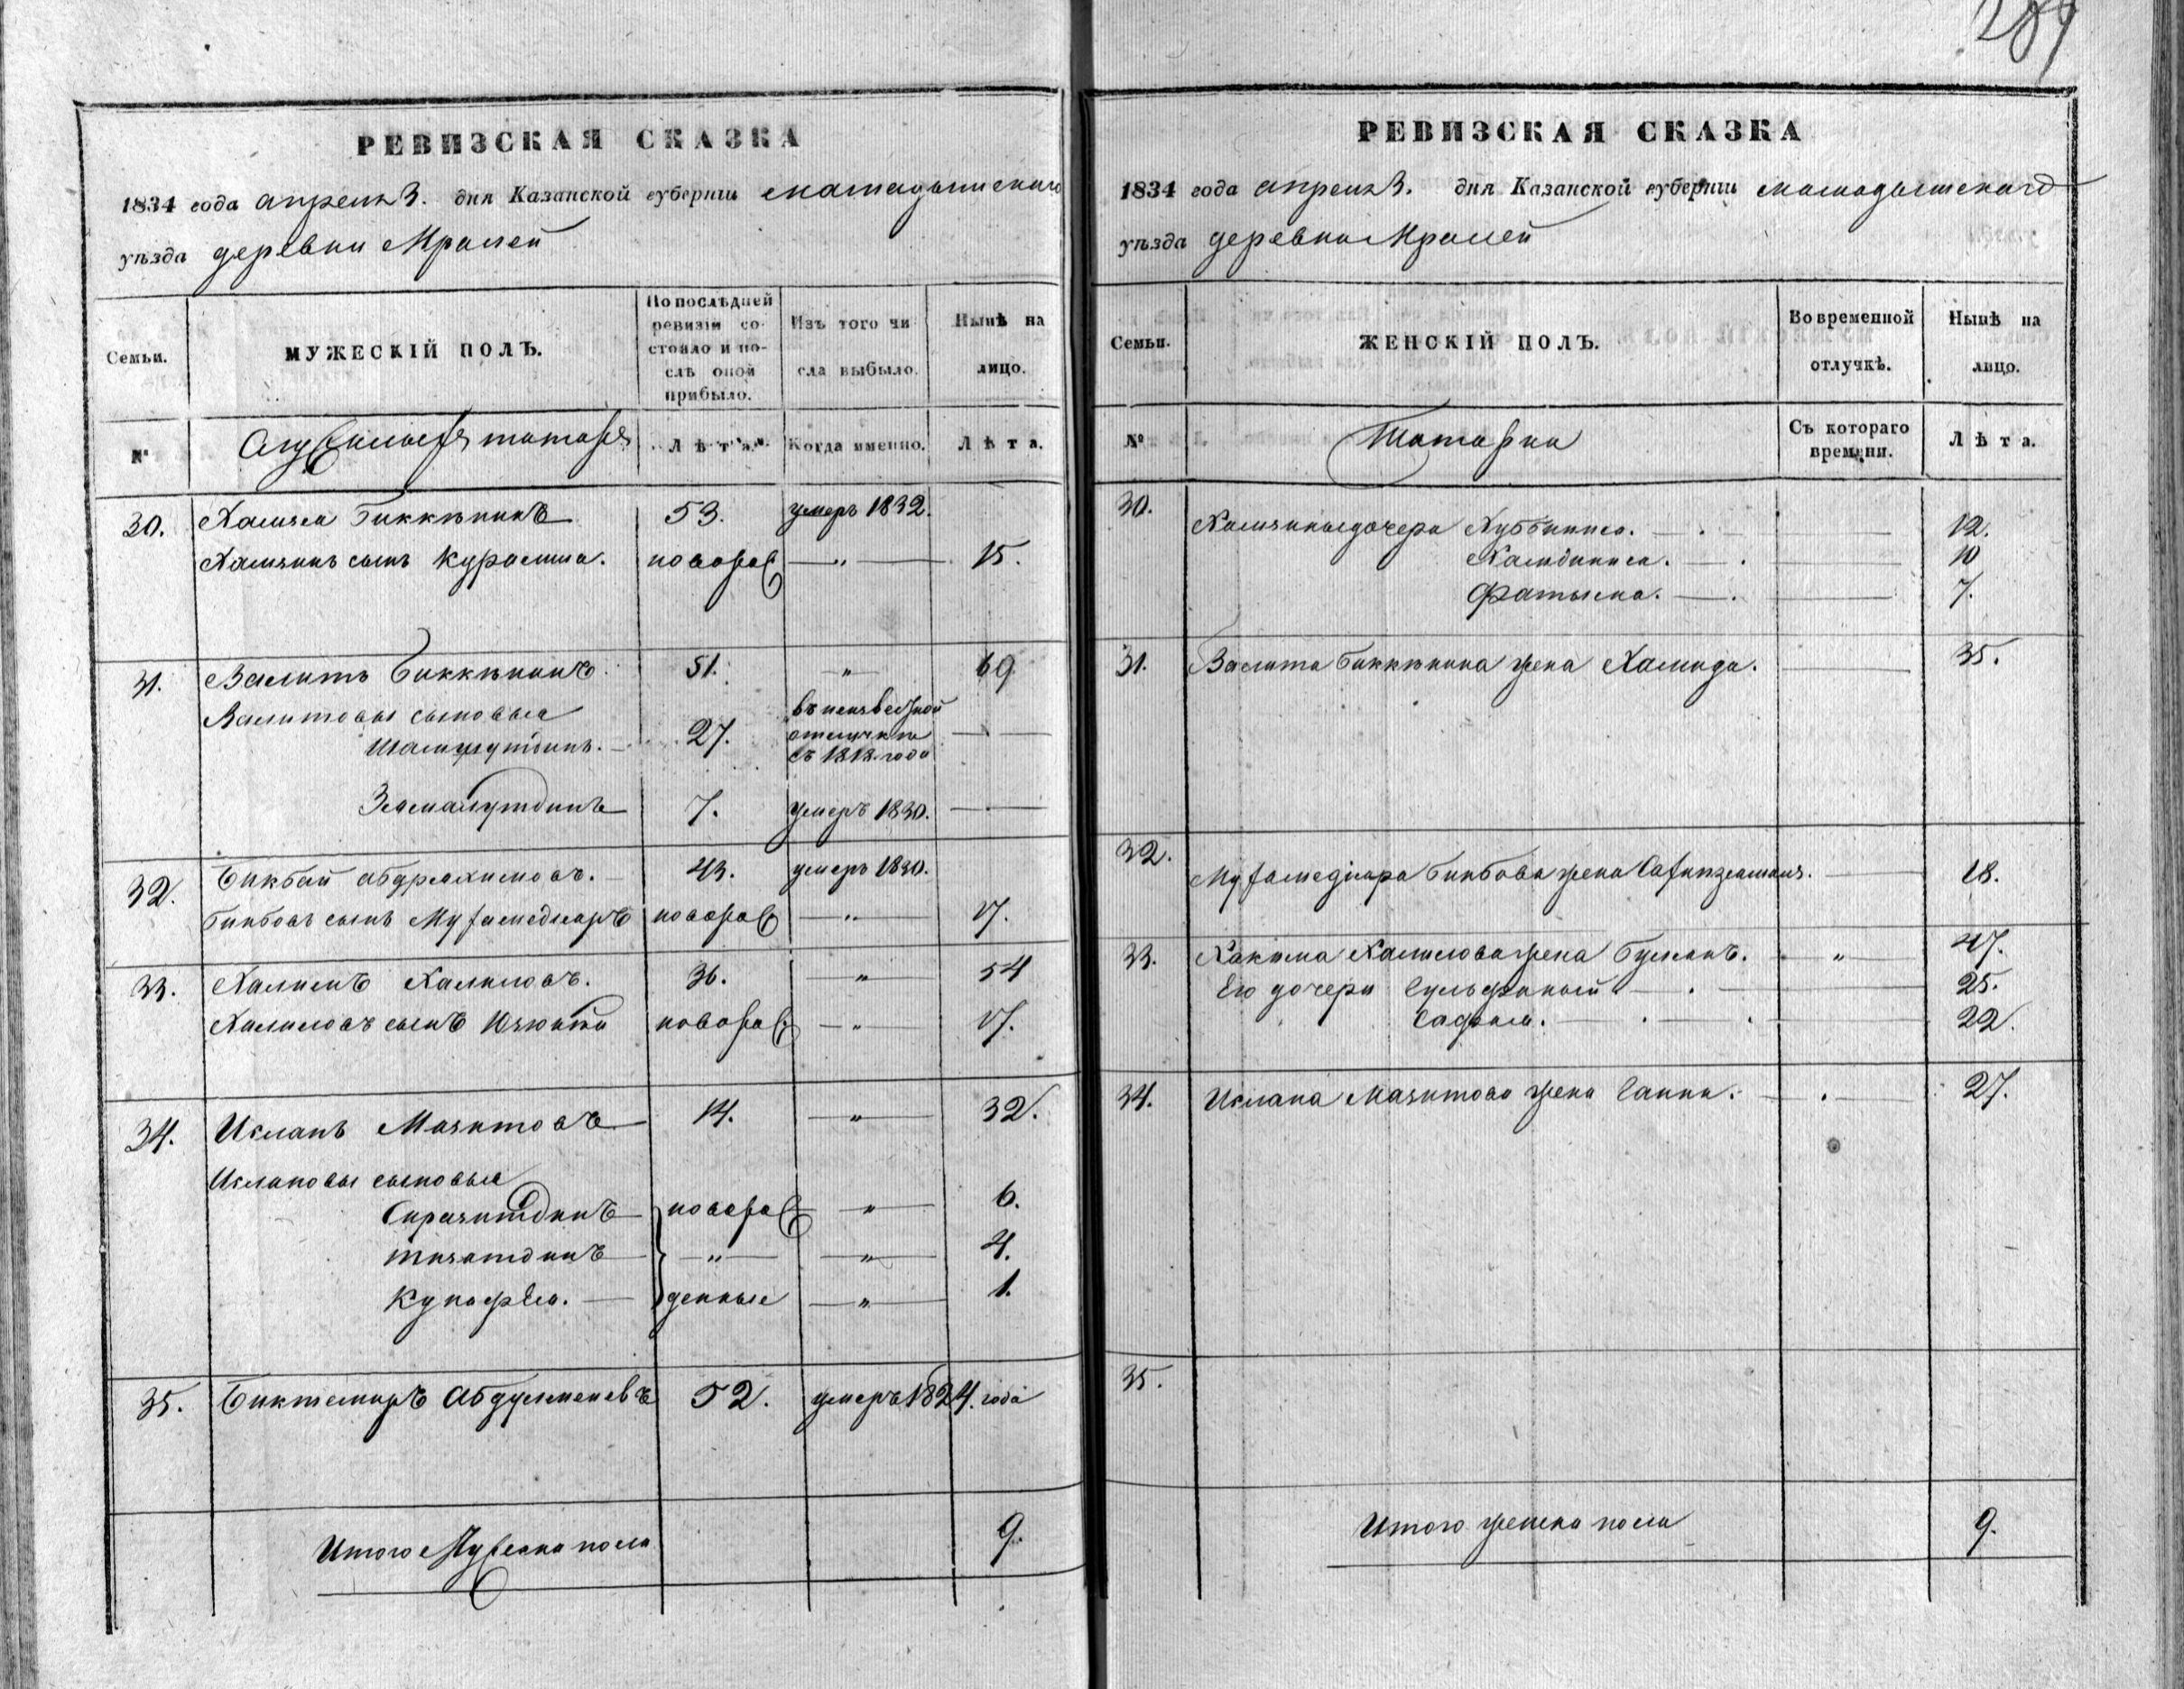 289
РЕВИЗСКАЯ СКАЗКА
1834 года апреля 3. дня Казанской губернии мамадышскаго
уѣзда деревни Мралей
Семьи.
МУЖЕСКІЙ ПОЛЪ.
По послѣдней ревизіи состояло и послѣ оной прибыло.
Изъ того числа выбыло.
Нынѣ на лицо.
№
служилыя татаря
Лѣта.
Когда именно.
Лѣта.
30. Хамзя Биккѣнинъ 53. умеръ 1832.
Хамзинъ сынъ Курамша. новорож — " — 15.
31. Валитъ Биккѣнинъ 51. " 69
Валитовы сыновья
Шамсутдинъ. — 27. въ неизвестной отлучки съ 1818 года —
Замалутдинъ 7. умеръ 1830. —
32. Бикбай абдряхимовъ. 43. умеръ 1830.
Бикбовъ сынъ Мухамедіаръ новорож — " — 17.
33. Халимъ Халиловъ. 36. " 54
Халиловъ сынъ новорож — " — 17.
34. Исланъ Мазитовъ 14. " 32.
Ислановы сыновья
Сиразитдинъ новорож " 6.
тизатдинъ — " — " 4.
денные — " 1.
35. Биктемиръ Абдулменевъ 52. умеръ 1824. года
Итого Мужеска пола 9.
РЕВИЗСКАЯ СКАЗКА
1834 года апреля 3. дня Казанской губерніи мамадышскаго
уѣзда деревни Мралей
Семьи.
ЖЕНСКІЙ ПОЛЪ.
Во временной отлучкѣ.
Нынѣ на лицо.
№
Татарки
Съ котораго времени.
Лѣта.
30. Хамзины дочери Хуббиниса. — 12.
Хамдиниса. — 10
Фатыма. — 7.
31. Валита Биккѣнина жена Хамида. — 35.
32. Мухамедіяра Бикбова жена — 18.
33. Хакима Халилова жена " 47.
Его дочери — 25.
— 22.
34. Ислана Мазитова жена — 27.
35.
Итого женска пола 9.